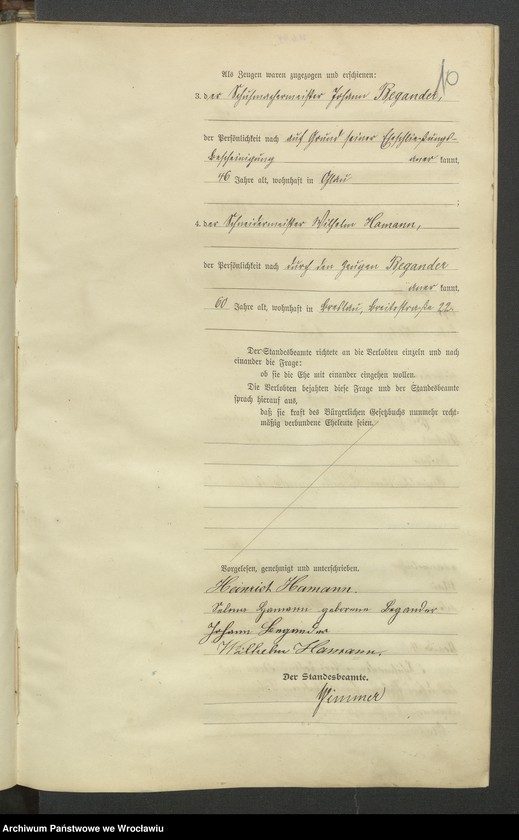 10
Als Zeugen waren zugezogen und erschienen:
3. der Schuhmachermeister Johann Begander,
der Persönlichkeit nach auf Grund seiner Eheschließungs-
bescheinigung aner kannt,
46 Jahre alt, wohnhaft in Ohlau
;
4. der Schneidermeister Wilhelm Hamann,
der Persönlichkeit nach durch den Zeugen Begander
aner kannt,
60 Jahre alt, wohnhaft in Breslau, Breitestraße 22.
Der Standesbeamte richtete an die Verlobten einzeln und nach
einander die Frage:
ob sie die Ehe mit einander eingehen wollen.
Die Verlobten bejahten diese Frage und der Standesbeamte
sprach hierauf aus,
daß sie kraft des Bürgerlichen Gesetzbuchs nunmehr recht-
mäßig verbundene Eheleute seien.
Vorgelesen, genehmigt und unterschrieben.
Heinrich Hamann.
Selma Hamann geborene Begander
Johann Begander
Wilhelm Hamann.
Der Standesbeamte.
Wimmer
Archiwum Państwowe we Wrocławiu